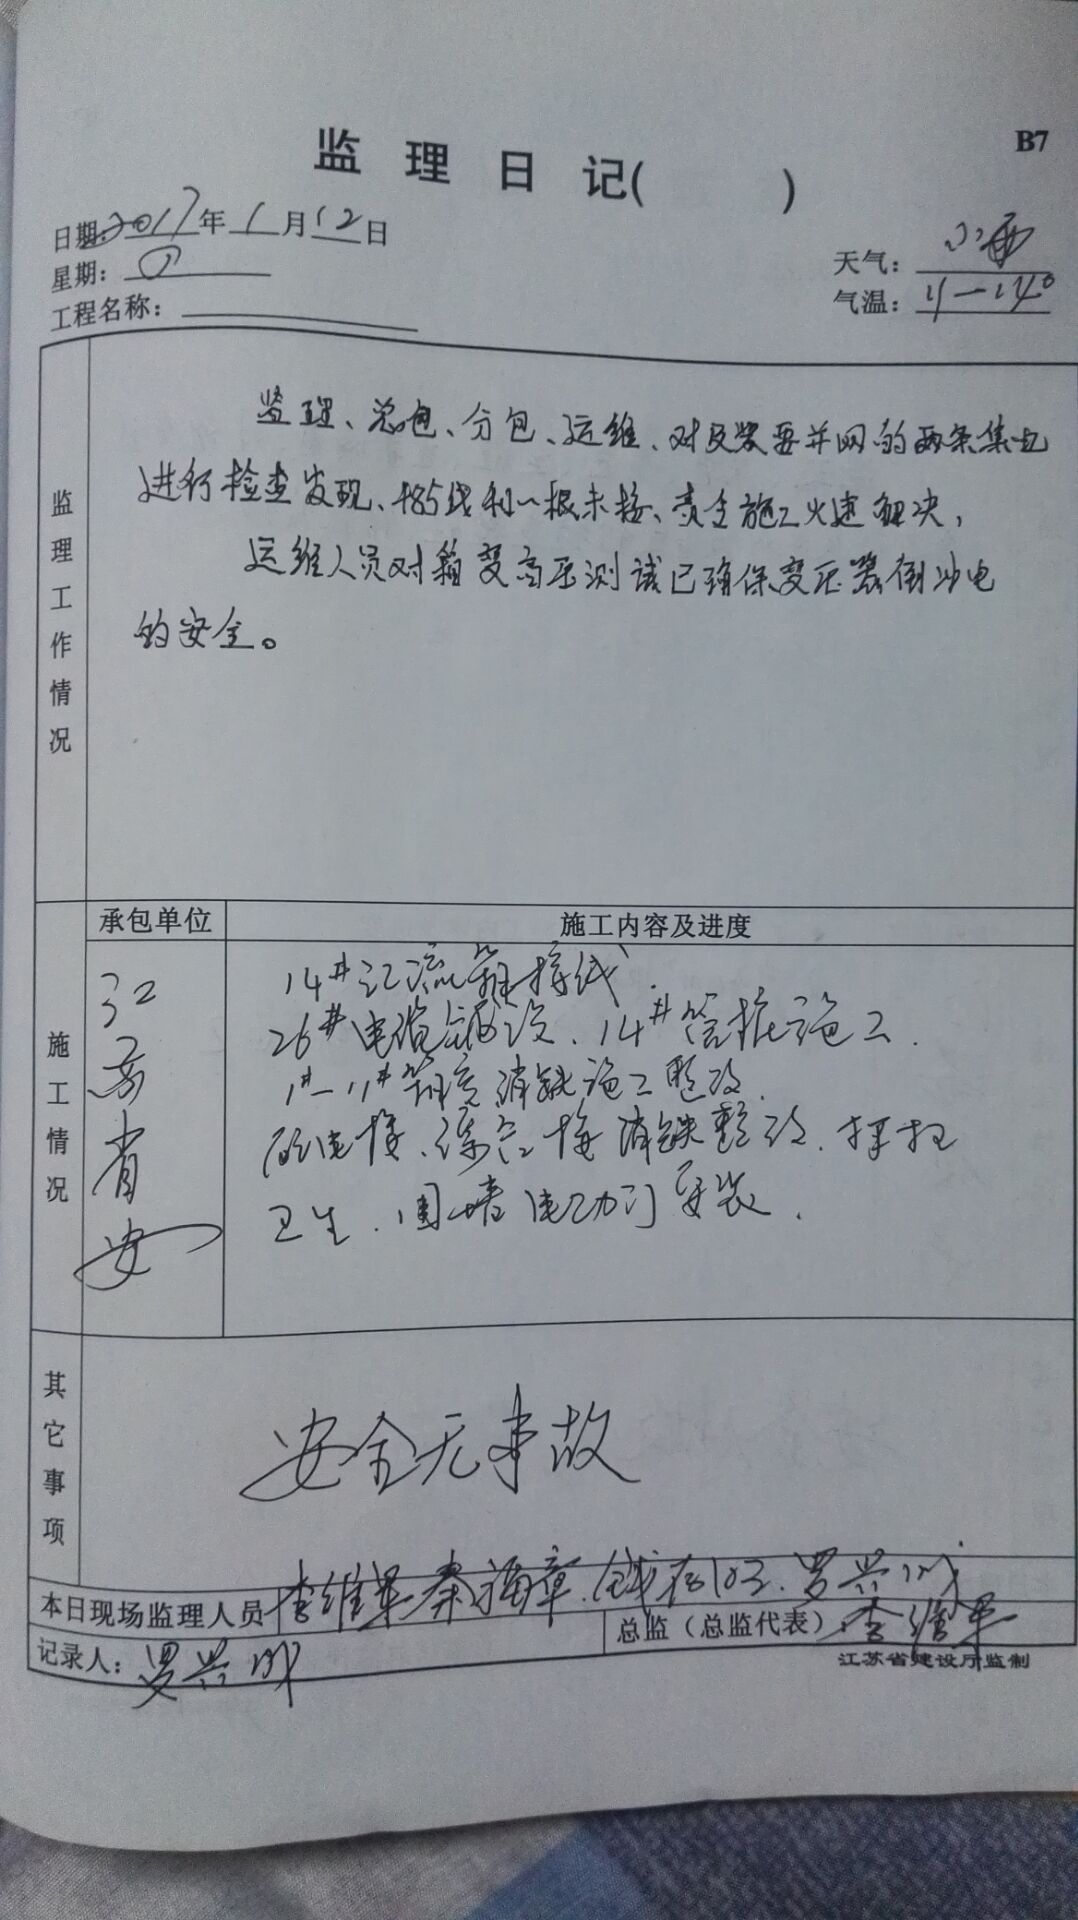 B7
监理日记( )
日期:2017年1月12日
星期:四
工程名称:
天气:小雨
气温:11-14°
监理工作情况
监理、总包、分包、运维、对反装要并网的两条集电
进行检查发现、485线和一根未接、责令施工火速解决,
运维人员对箱变高压测试已确保变压器倒冲电
的安全。
施工情况
承包单位
施工内容及进度
江苏省安
14#汇流箱接线.
26#电缆铺设、14#管桩施工.
1#-11#箱变消缺施工整改.
配电楼、综合楼消缺整改、打扫
卫生、围墙电动门安装.
其它事项
安全无事故
本日现场监理人员 李维军 秦福章、钱 、罗兴成
记录人:罗兴成
总监(总监代表) 李维军
江苏省建设厅监制